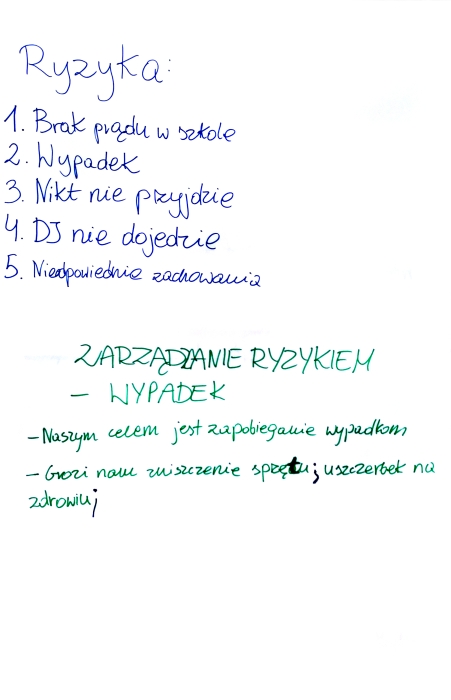 Ryzyka:
1. Brak prądu w szkole
2. Wypadek
3. Nikt nie przyjdzie
4. DJ nie dojedzie
5. Nieodpowiednie zachowania
ZARZĄDZANIE RYZYKIEM
- WYPADEK
- Naszym celem jest zapobieganie wypadkom
- Grozi nam zniszczenie sprzętu; uszczerbek na
zdrowiu;